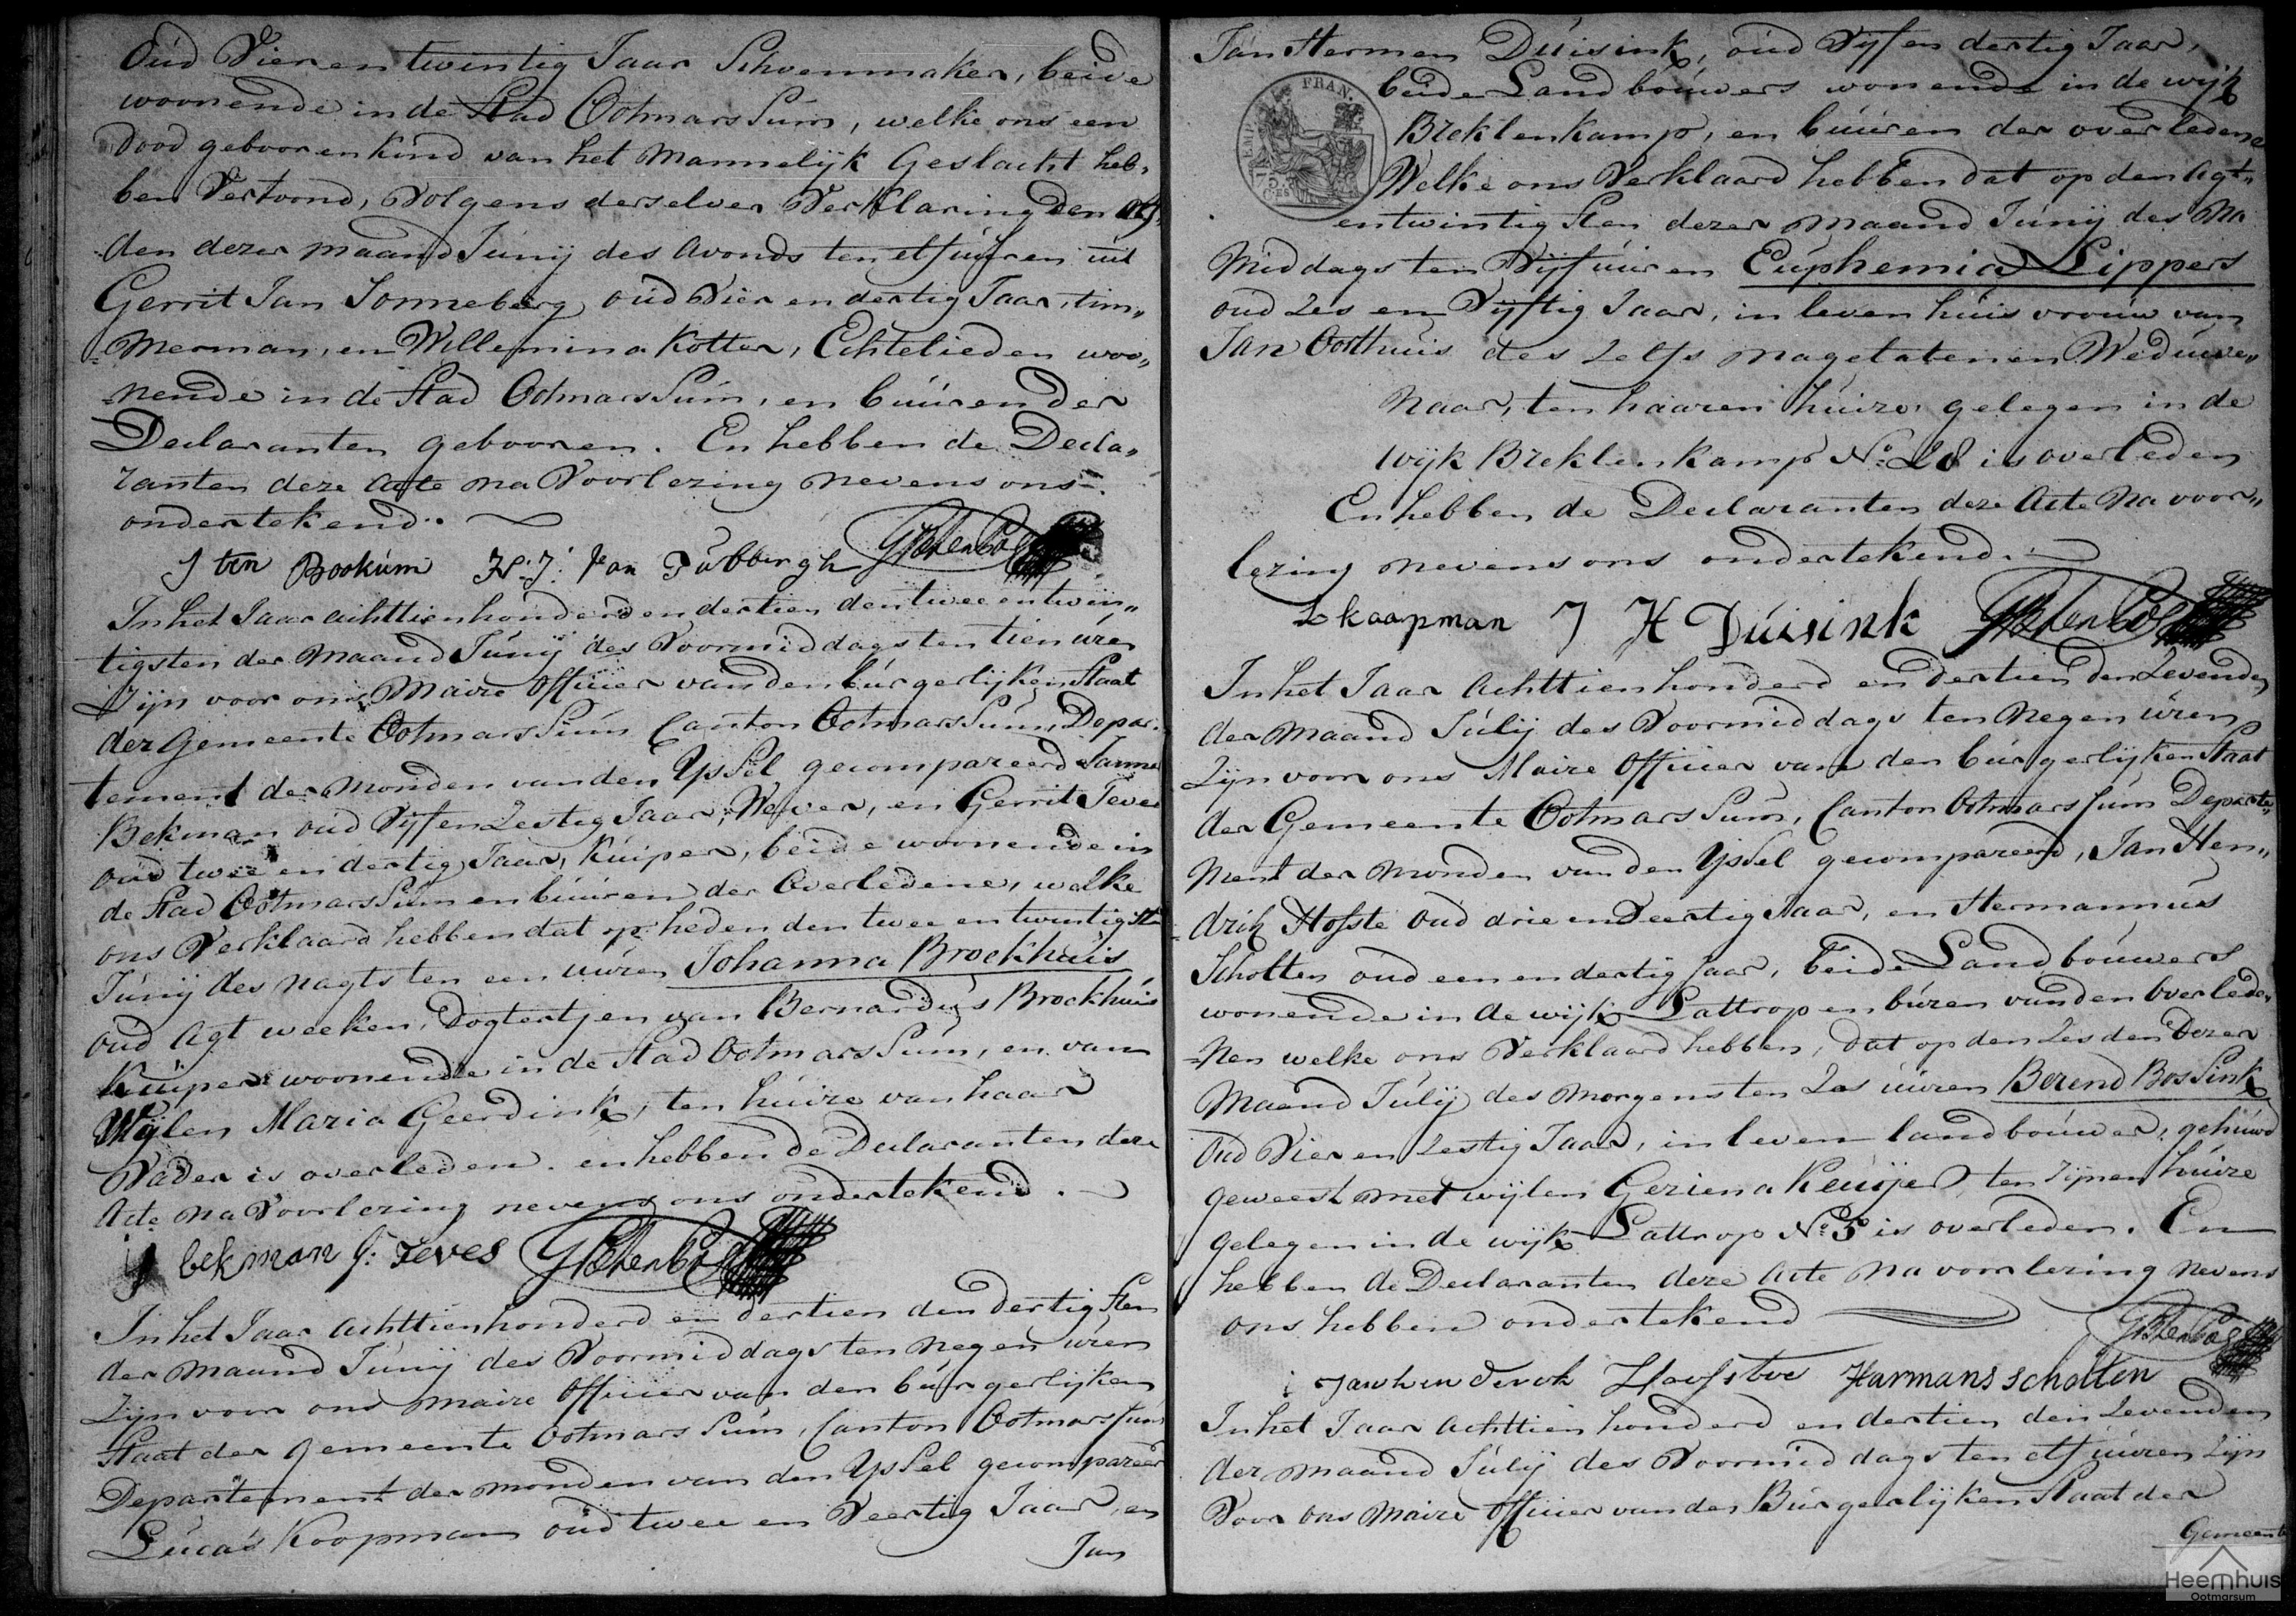 Oud Vier en twintig Jaar Schoenmaker, beide
woonende in de Stad OotmarsSum, welke ons een
dood gebooren kind van het Mannelijk Geslacht heb,,
ben Vertoond, Volgens derselver Verklaring den
den dezer maand Junij des Avonds ten elf uuren uit
Gerrit Jan Sonneberg oud Vier en dertig Jaar, tim,,
merman, en Willemina Kotter, Echtelieden woo,,
nende in de Stad OotmarsSum, en buuren der
Declaranten gebooren. En hebben de Decla,,
ranten deze Acte na Voorlezing nevens ons
ondertekend.
J ten Bookum H: J: Van Tubbergh
In het Jaar achttienhonderd en dertien den twee en twin,,
tigsten der Maand Junij des Voormiddags ten tien uren
Zijn voor ons Maire Officier van den burgerlijken Staat
der Gemeente OotmarsSum Canton OotmarsSum, Depar,,
tement der Monden van den YsSel gecompareerd Janna
Bekman oud Vijf en Zestig Jaar, Wever, en Gerrit Teves
oud twee en dertig Jaar, Kuiper, beide woonende in
de Stad OotmarsSum en buuren der Overledene, welke
ons Verklaard hebben dat op heden den twee en twintigste
Junij des nagts ten een uuren Johanna Brockhuis
oud Agt weeken, Dogtertjen van Bernardus Brockhuis
Kuiper woonende in de Stad OotmarsSum, en van
Wijlen Maria Geerdink, ten huize van haar
Vader is overleden. en hebben de Declaranten deze
Acte na Voorlezing nevens ons ondertekend.
bekman G: Teves
In het Jaar Achttienhonderd en dertien den dertigsten
der Maand Junij des Voormiddags ten negen uren
Zijn voor ons Maire Officier van den burgerlijken
Staat der Gemeente OotmarsSum, Canton OotmarsSum
Departement der monden van den YsSel gecompareerd
Lucas Koopman oud twee en Veertig Jaar, en
Jan
Jan Hermen Duisink, oud Vijf en dertig Jaar,
beide Landbouwers wonende in de wijk
Breklenkamp, en buuren der overledene
Welke ons Verklaard hebben dat op den Agt,,
en twintigsten dezer Maand Junij des Na
Middags ten Vijf uuren Euphemia Lippers
oud Zes en Vijftig Jaar, in leven huisvrouw van
Jan Oosthuis des Zelfs nagelatenen Weduwe,,
naar, ten haaren huize, gelegen in de
Wijk Breklenkamp No. 28 is overleden
En hebben de Declaranten deze Acte Na voor,,
lezing nevens ons ondertekend.
L koopman J H Duisink
In het Jaar Achttienhonderd en dertien den Zevenden
der Maand Julij des Voormiddags ten Negen uren
Zijn voor ons Maire Officier van den burgerlijken Staat
der Gemeente OotmarsSum, Canton OotmarsSum Departe,,
ment der Monden van den YsSel gecompareerd, Jan Hen,,
drik Hofste oud drie en Veertig Jaar, en Hermannus
Scholten oud een en dertig Jaar, beide Landbouwers
wonende in de wijk Lattrop en buren van den Overlede,,
nen welke ons Verklaard hebben, dat op den Zesden Dezer
Maand Julij des Morgens ten Zes uuren Berend BosSink
Oud Vier en Zestig Jaar, in leven landbouwer, gehuwd
geweest met wijlen Geriena Keuijer ten Zijnen huize
gelegen in de wijk Lattrop No. 5 is overleden. En
hebben de Declaranten deze Acte na voorlezing nevens
ons hebben ondertekend
Harmans scholten
In het Jaar Achttienhonderd en dertien den Zevenden
der maand Julij des Voormiddags ten elf uuren Zijn
Voor ons Maire Officier van den Burgerlijken Staat der
Gemeente
FRAN.
Heemhuis
Ootmarsum